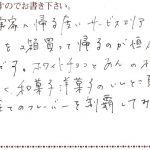 すのでお書き下さい。
実家へ帰る度、サービスエリア
を2箱買って帰るのが恒
です。ホワイトチョコとあんの
く和菓子洋菓子のいいとこ
全てのフレーバーを制覇してみ